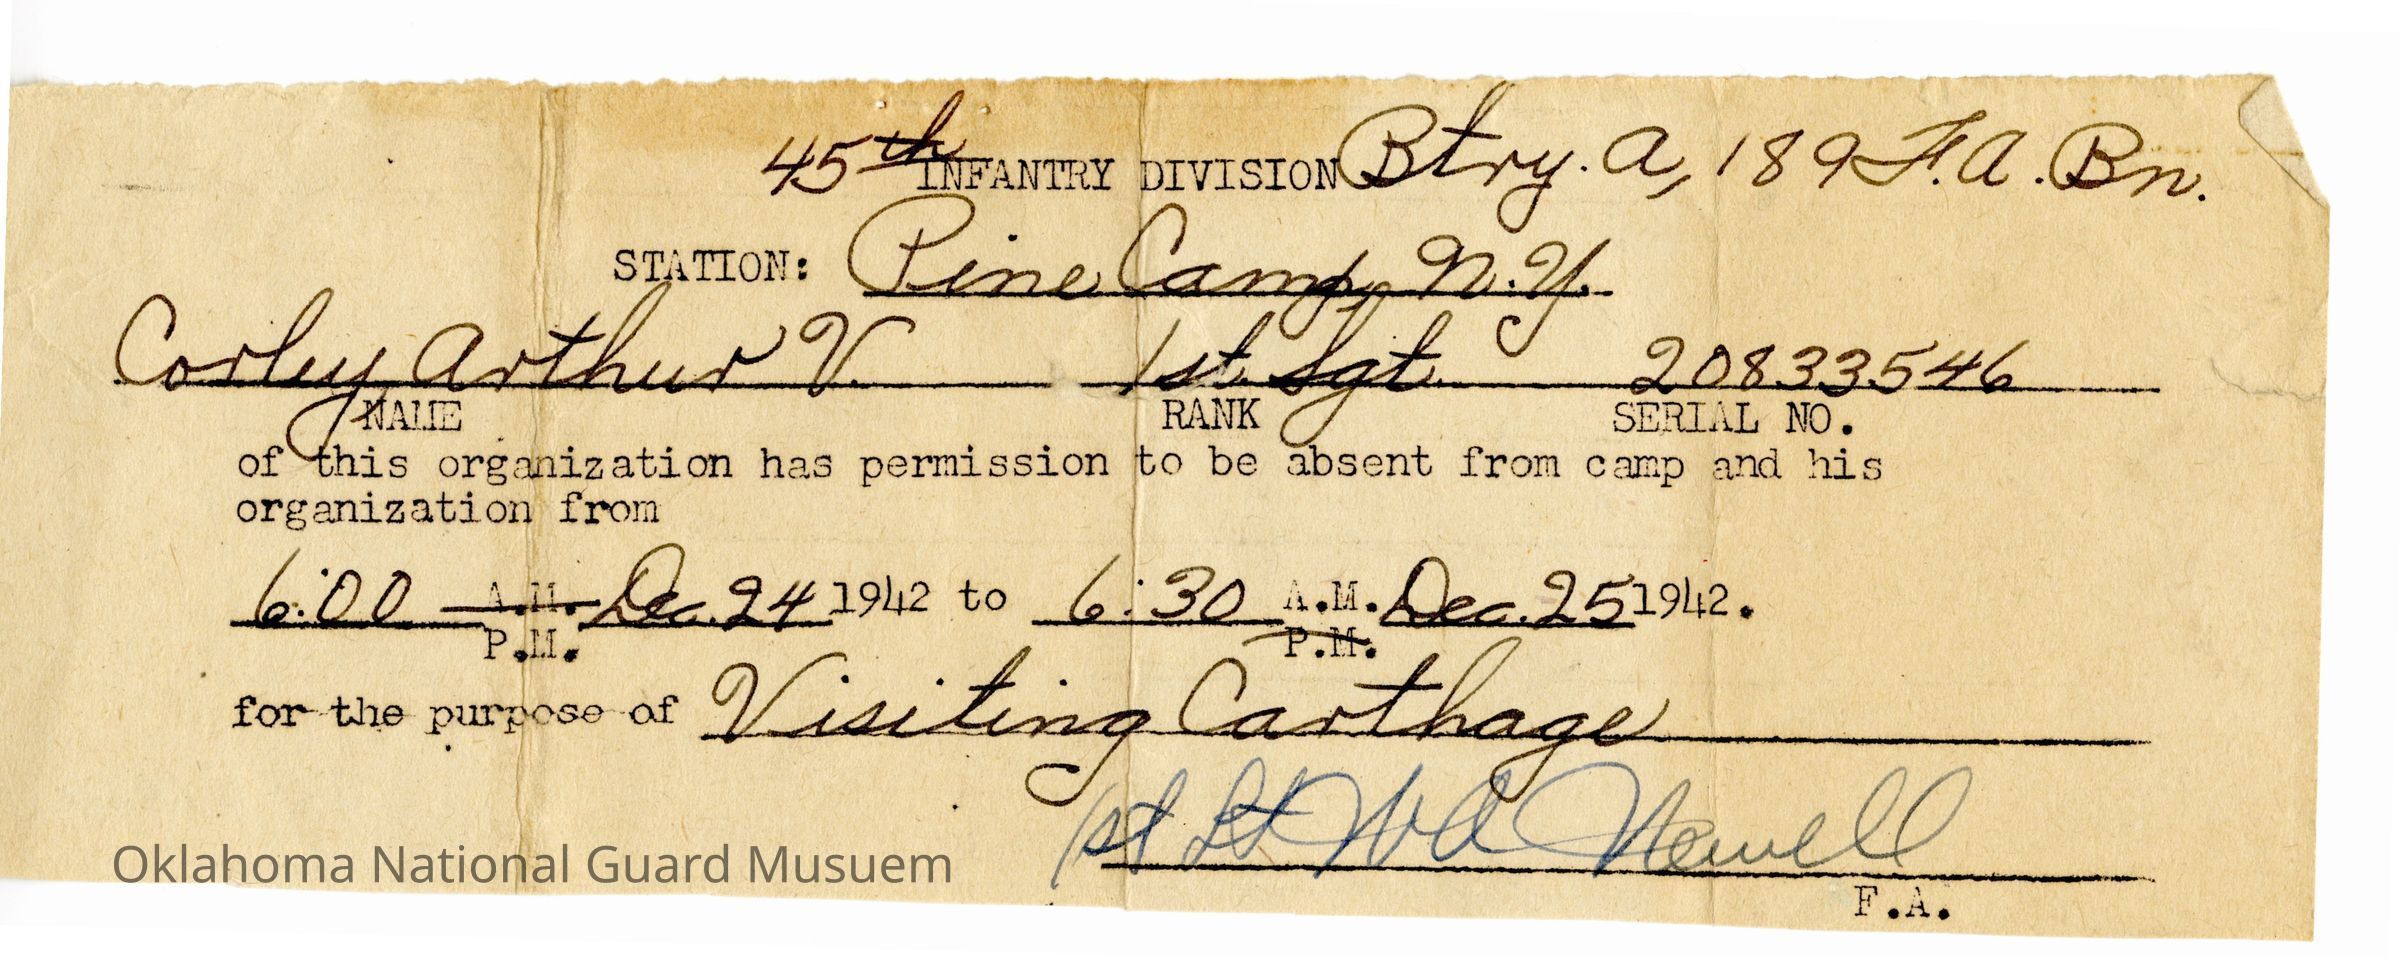 45th INFANTRY DIVISION Btry. A, 189 F.A. Bn.
STATION: Pine Camp, N.Y.
Corley Arthur V. 1st. Sgt. 20833546
NAME RANK SERIAL NO.
of this organization has permission to be absent from camp and his
organization from
6:00 A.M. Dec. 24 1942 to 6:30 A.M. Dec. 25 1942.
P.M. P.M.
for the purpose of Visiting Carthage
1st Lt W A Newell
F.A.
Oklahoma National Guard Musuem